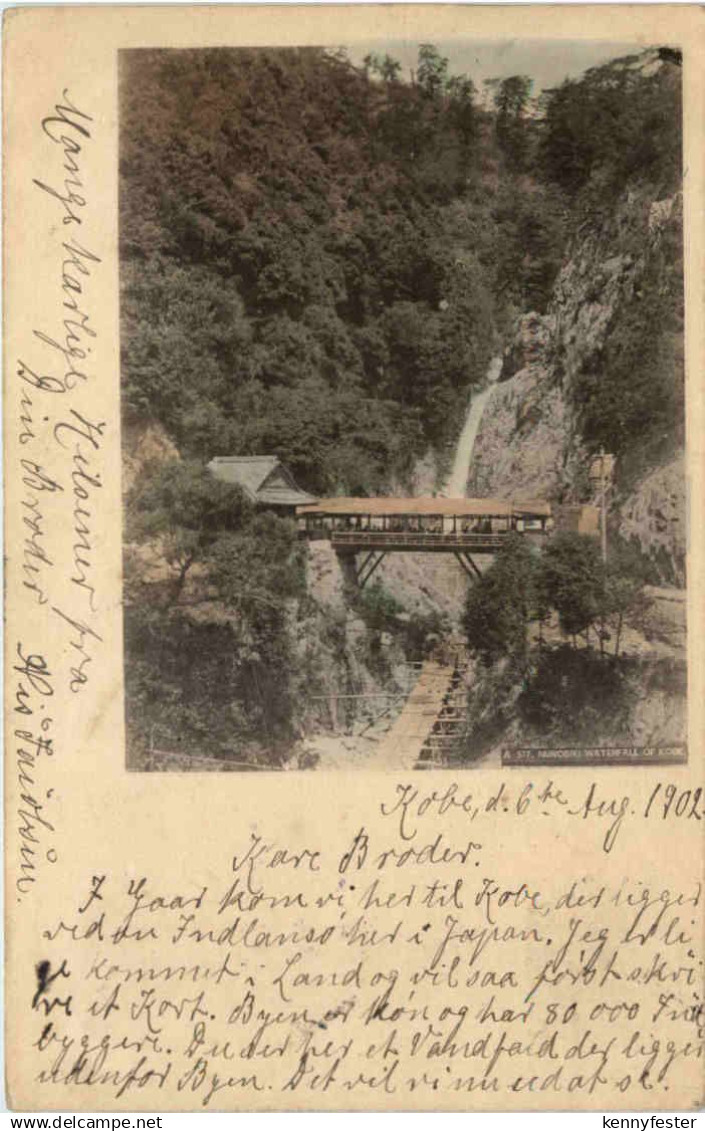 A 577. NUNOBIKI WATERFALL OF KOBE.
Kobe, d. 6te Aug. 1902.
Kære Broder.
I Gaar kom vi her til Kobe, der ligger
ved en Indlansø her i Japan. Jeg er li
ge kommet i Land og vil saa først skri
ve et Kort. Byen er køn og har 80 000 Ind
byggere. Du ser her et Vandfald der ligger
udenfor Byen. Det vil vi nu ud at se.
Mange kærlige Hilsener fra
Din Broder
Nis
kennyfester